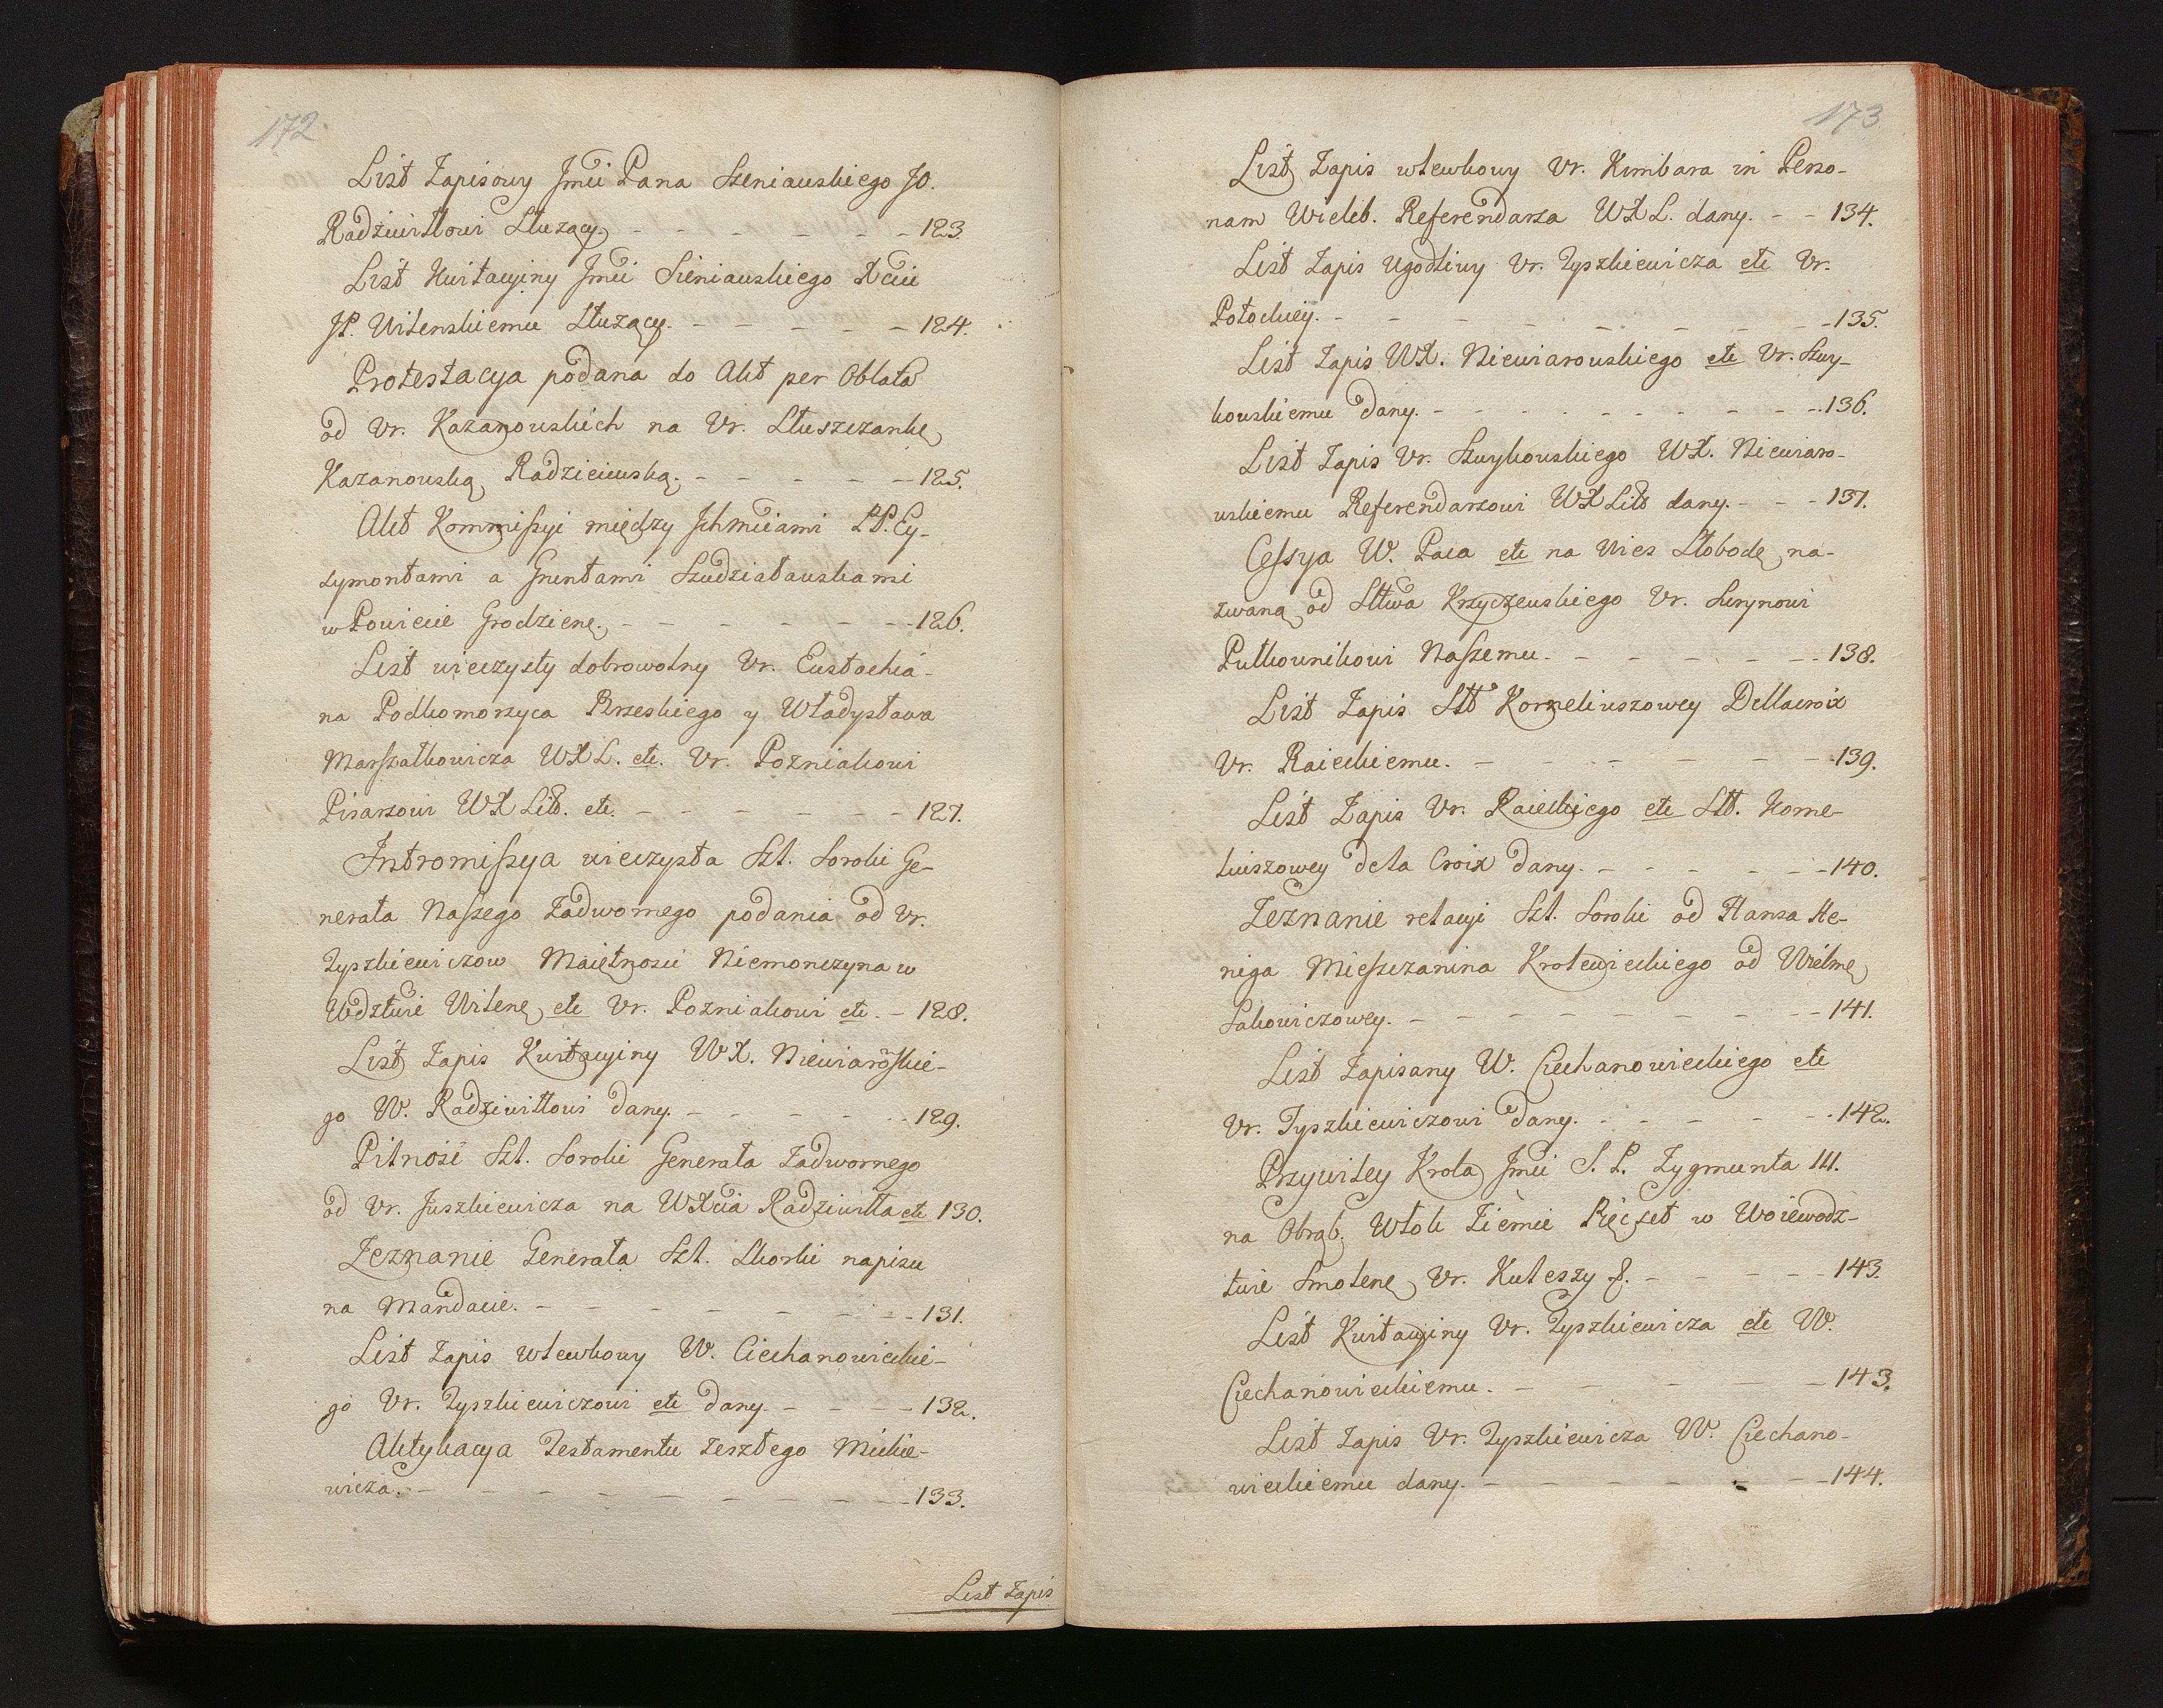 172.
List Zapisowy Jmći Pana Sieniawskiego JO.
Radziwiłłowi Służący. - - - - - - 123.
List Kwitacyiny Jmći Sieniawskiego Xciu
JP. Wilenskiemu Służący. - - - - - 124.
Protestacya podana do Akt per Oblatã
od Ur. Kazanowskich na Ur. Słuszczankę
Kazanowską Radzieiewską. - - - - - 125.
Akt Kommissyi między Ichmćiami PP. Ey-
symontami a Gruntami Szudziałowskami
w Powiecie Grodzienę. - - - - - - 126.
List wieczysty dobrowolny Ur. Eustachia-
na Podkomorzyca Brzeskiego y Władysława
Marszałkowicza WXL. etc. Ur. Pozniakowi
Pisarzowi WX Litt. etc. - - - - - - 127.
Intromissya wieczysta Szl. Soroki Ge-
nerała Naszego Zadwornego podania od Ur.
Tyszkiewiczow Maiętnosci Niemonczyna w
Wdztwie Wilenę etc Ur. Pozniakowi etc. - 128.
List Zapis Kwitacyiny WX. Niewiarõskie-
go W. Radziwiłłowi dany. - - - - - 129.
Pilność Szl. Soroki Generała Zadwornego
od Ur. Juszkiewicza na WXcia Radziwiłła etc 130.
Zeznanie Generała Szl. Skorki napisu
na Mandacie. - - - - - - - - 131.
List Zapis wlewkowy W. Ciechanowieckie-
go Ur. Tyszkiewiczowi etc dany. - - - - 132.
Aktykacya Testamentu zeszłego Mickie-
wicza. - - - - - - - - - - 133.
List Zapis
173
List Zapis wlewkowy Ur. Kimbara in Perso-
nam Wieleb. Referendarza WXL. dany. - - 134.
List Zapis Ugodliwy Ur. Tyszkiewicza etc Ur.
Potockiey. - - - - - - - - - 135.
List Zapis WX. Niewiarowskiego etc Ur. Szuy-
kowskiemu dany. - - - - - - - - - 136.
List Zapis Ur. Szuykowskiego WX. Niewiaro-
wskiemu Referendarzowi WX Litt dany. - - - 137.
Cessya W. Paca etc na Wies Słobodę na-
zwaną od Sttwa Krzyczewskiego Ur. Surynowi
Pułkownikowi Naszemu. - - - - - - 138.
List Zapis Sltt Korneliuszowey Dellacroix
Ur. Raieckiemu. - - - - - - - 139.
List Zapis Ur. Raieckiego etc Sltt. Korne-
liuszowey dela Croix dany. - - - - - - 140.
Zeznanie relacyi Szl. Soroki od Hansa He-
niga Mieszczanina Krolewieckiego od Wielmę
Sakowiczowey. - - - - - - - - - 141.
List Zapisany W. Ciechanowieckiego etc
Ur. Tyszkiewiczowi dany. - - - - - 142.
Przywiley Krola Jmći S. P. Zygmunta III.
na Obrąb. Włok Ziemie Pięcset w Woiewodz-
twie Smolenę Ur. Kuleszy f. - - - - - 143.
List Kwitacyiny Ur. Tyszkiewicza etc W.
Ciechanowieckiemu. - - - - - - 143.
List Zapis Ur. Tyszkiewicza W. Ciechano-
wieckiemu dany. - - - - - - - - 144.